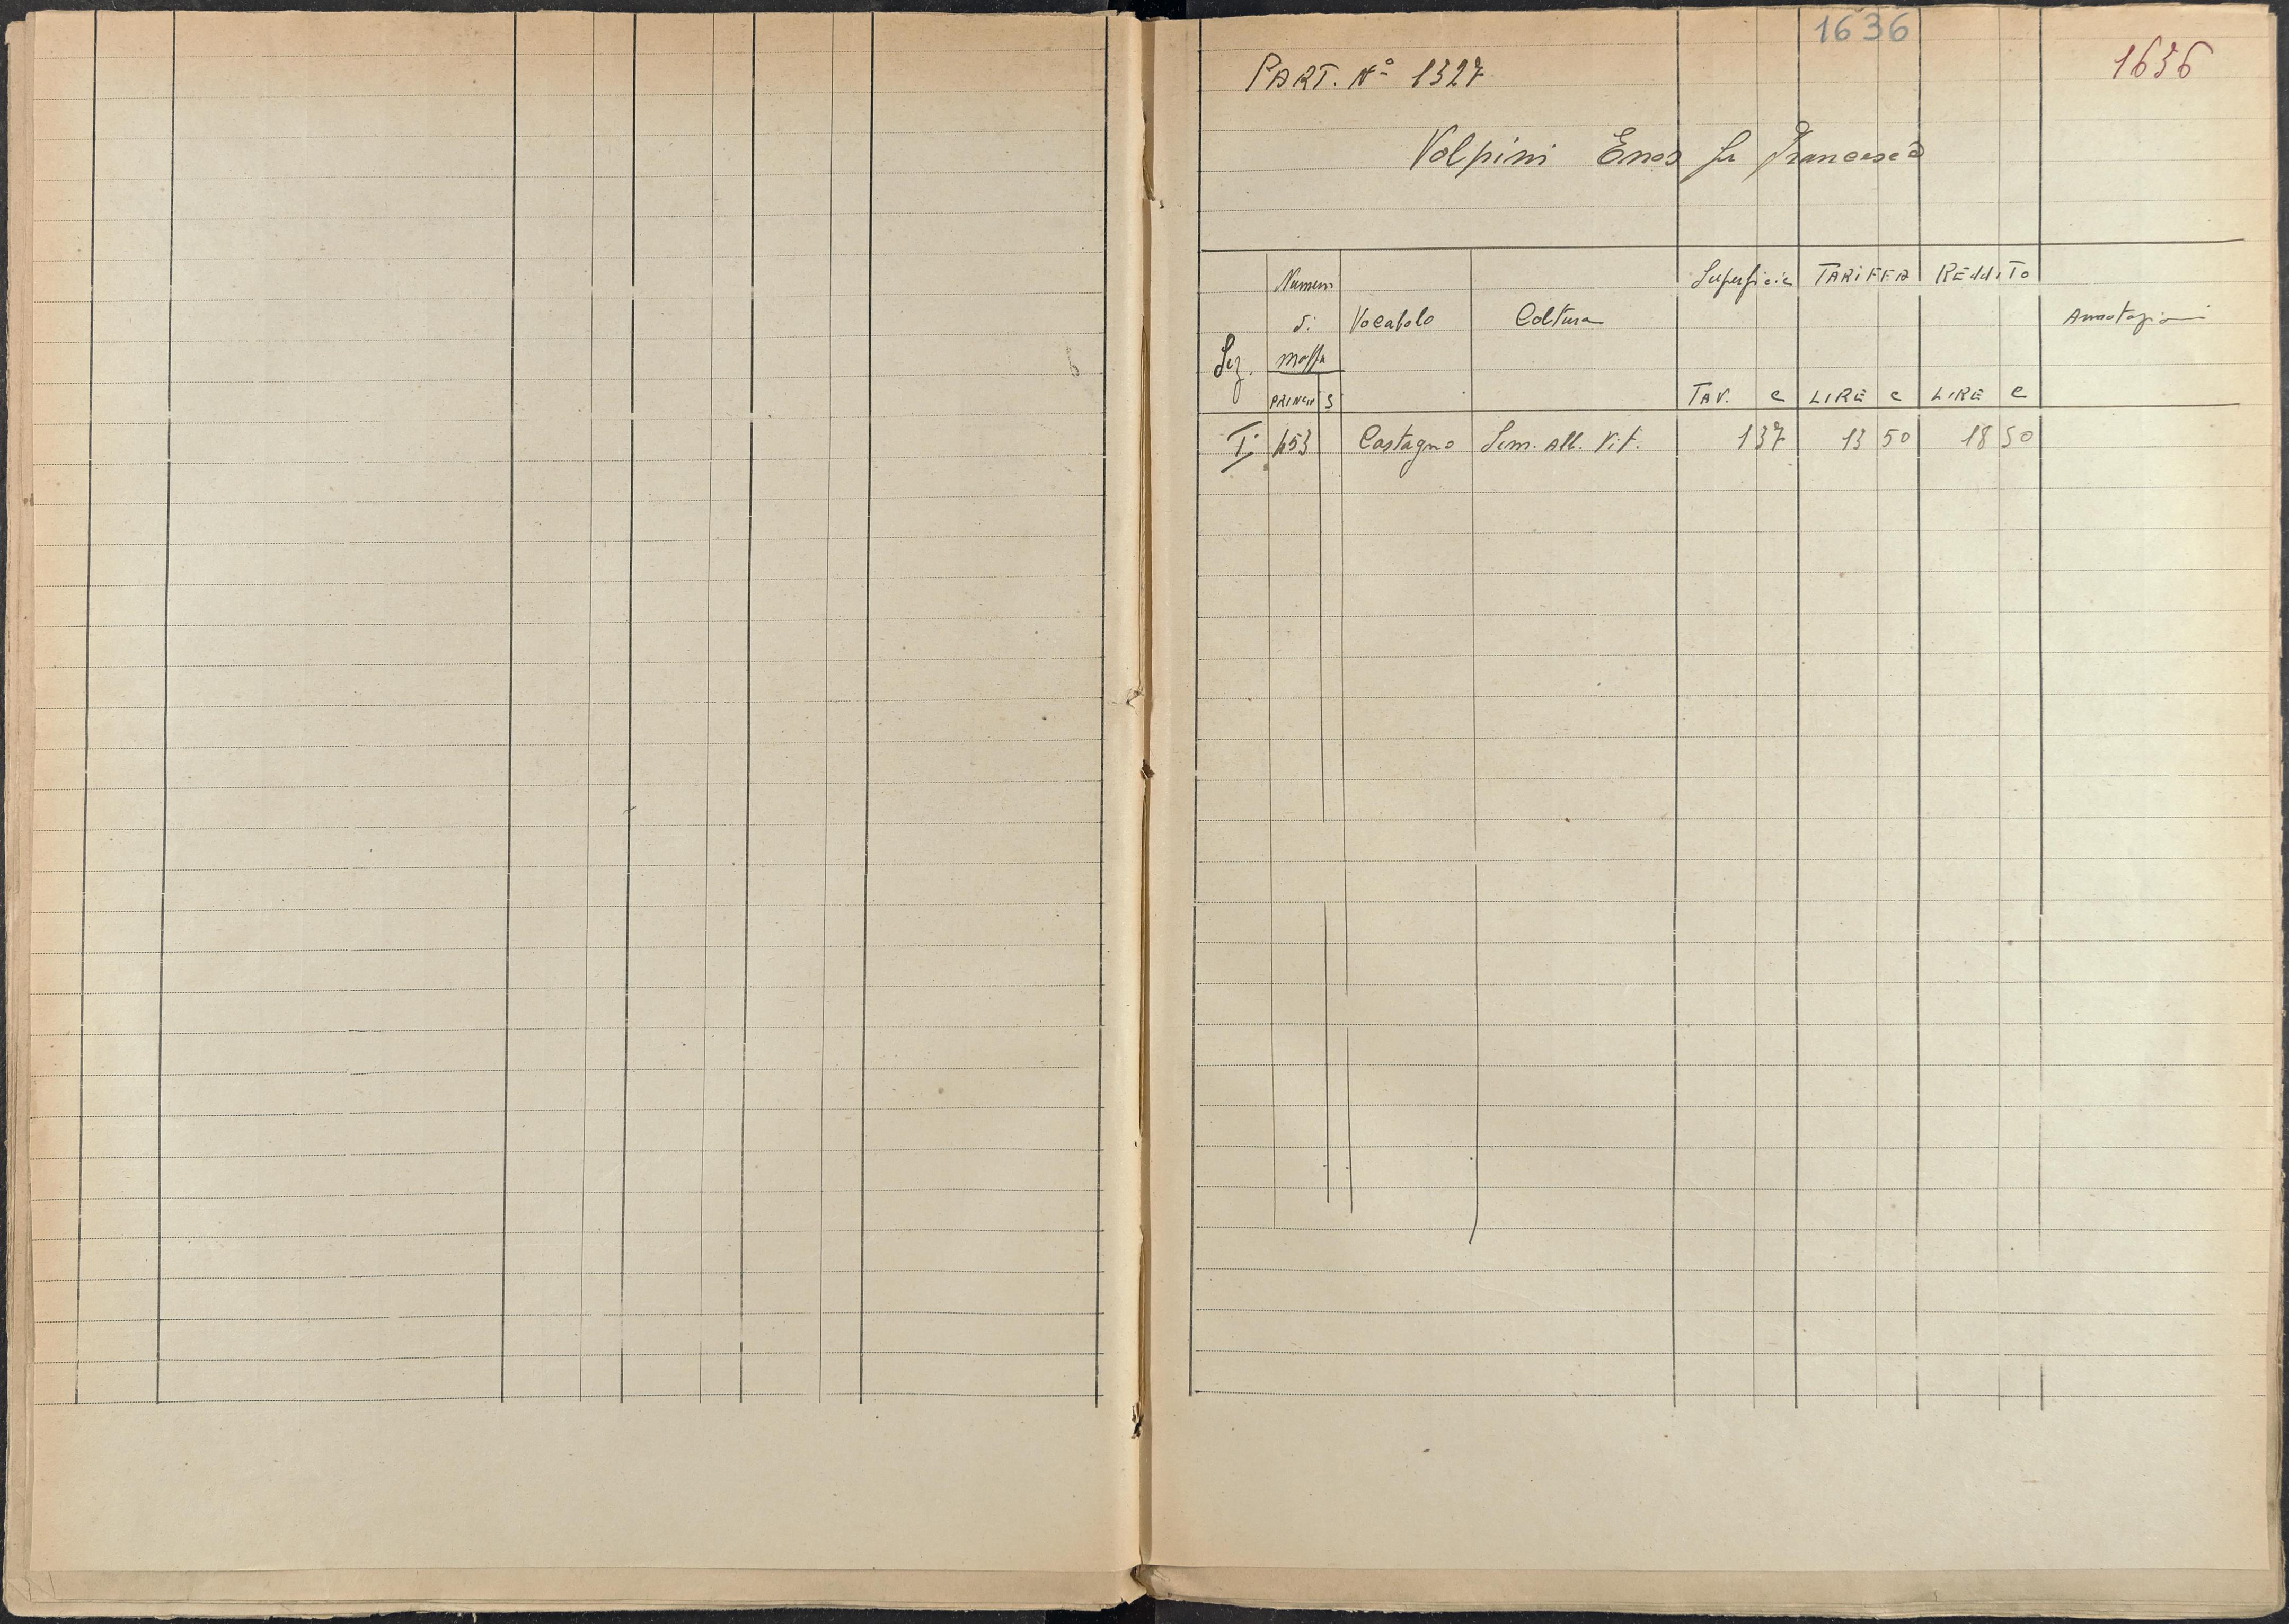 1636
1636
PART. Nº 1327
Volpini Enos fu Francesco
Sez.
Numeri
di
mappa
PRINCIP S
Vocabolo
Coltura
Superficie
TAV. C
TARIFFA
LIRE C
REddITO
LIRE C
Annotazioni
I 453 Castagno Sem. Alb. Vit. 137 13 50 18 50